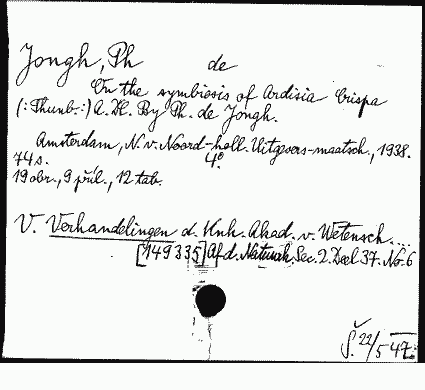 Jongh, Ph de
On the symbiosis of Ardisia Crispa
(:Thunb.:) A. DC. By Ph. de Jongh.
Amsterdam, N. v. Noord-holl. Uitgevers-maatsch., 1938.
74 s. 4°.
19 obr., 9 příl., 12 tab.
V. Verhandelingen d. Knh. Akad. v. Wetensch....
[149335] Afd. Natuurk. Sec. 2. Deel 37. No. 6
Š. 22/5 47.